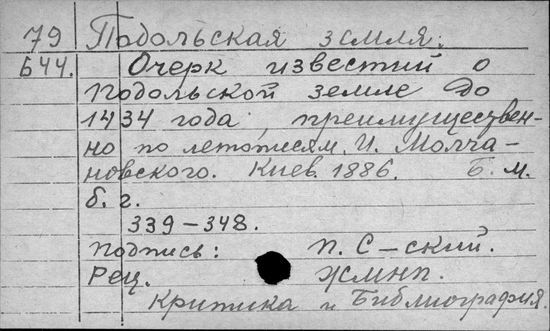 79 Подольская земля.
644. Очерк известий о
Подольской земле до
1434 года, преимуществен-
но по летописям. И. Молча-
новского. Киев. 1886. Б. м.
б. г.
339–348.
подпись: П. С–ский.
Рец. ЖМНП.
Критика и Библиография.